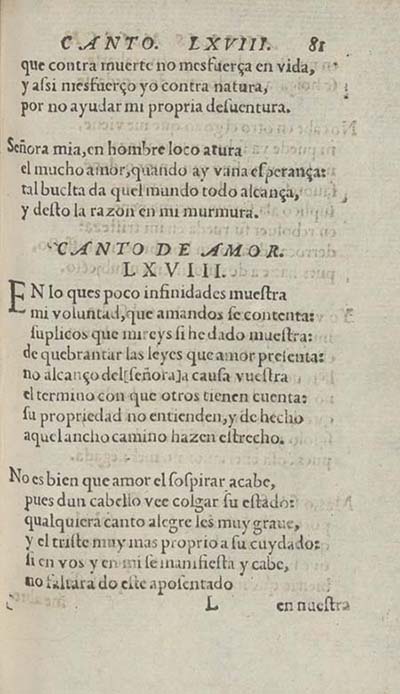 CANTO. LXVIII. 81
que contra muerte no mesfuerça en vida,
y assi mesfuerço yo contra natura,
por no ayudar mi propria desuentura.
Señora mia, en hombre loco atura
el mucho amor, quando ay vana esperança:
tal buelta da quel mundo todo alcança,
y desto la razon en mi murmura.
CANTO DE AMOR.
LXVIII.
EN lo ques poco infinidades muestra
mi voluntad, que amandos se contenta:
suplicos que mireys si he dado muestra:
de quebrantar las leyes que amor presenta:
no alcanço del[señora]a causa vuestra
el termino con que otros tienen cuenta:
su propriedad no entienden, y de hecho
aquel ancho camino hazen estrecho.
No es bien que amor el sospirar acabe,
pues dun cabello vee colgar su estado:
qualquiera canto alegre les muy graue,
y el triste muy mas proprio a su cuydado:
si en vos y en mi se manifiesta y cabe,
no faltara do este aposentado
L en nuestra